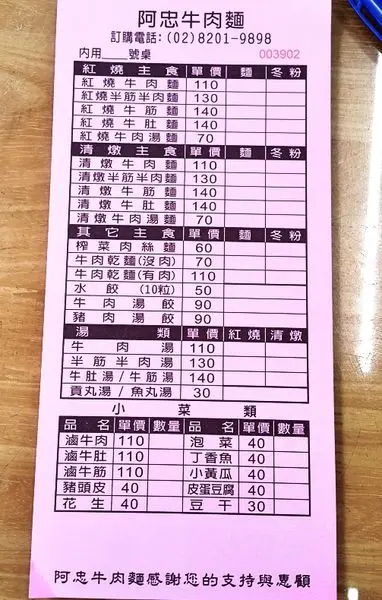 阿忠牛肉麵
訂購電話:(02)8201-9898
內用____號桌 003902
紅燒主食 單價 麵 冬粉
紅燒牛肉麵 110
紅燒半筋半肉麵 130
紅燒牛筋麵 140
紅燒牛肚麵 140
紅燒牛肉湯麵 70
清燉主食 單價 麵 冬粉
清燉牛肉麵 110
清燉半筋半肉麵 130
清燉牛筋麵 140
清燉牛肚麵 140
清燉牛肉湯麵 70
其它主食 單價 麵 冬粉
榨菜肉絲麵 60
牛肉乾麵(沒肉) 70
牛肉乾麵(有肉) 110
水餃(10粒) 50
牛肉湯餃 90
豬肉湯餃 90
湯類 單價 紅燒 清燉
牛肉湯 110
半筋半肉湯 130
牛肚湯/牛筋湯 140
貢丸湯/魚丸湯 30
小菜類
品名 單價 數量 品名 單價 數量
滷牛肉 110 泡菜 40
滷牛肚 110 丁香魚 40
滷牛筋 110 小黃瓜 40
豬頭皮 40 皮蛋豆腐 40
花生 40 豆干 30
阿忠牛肉麵感謝您的支持與惠顧